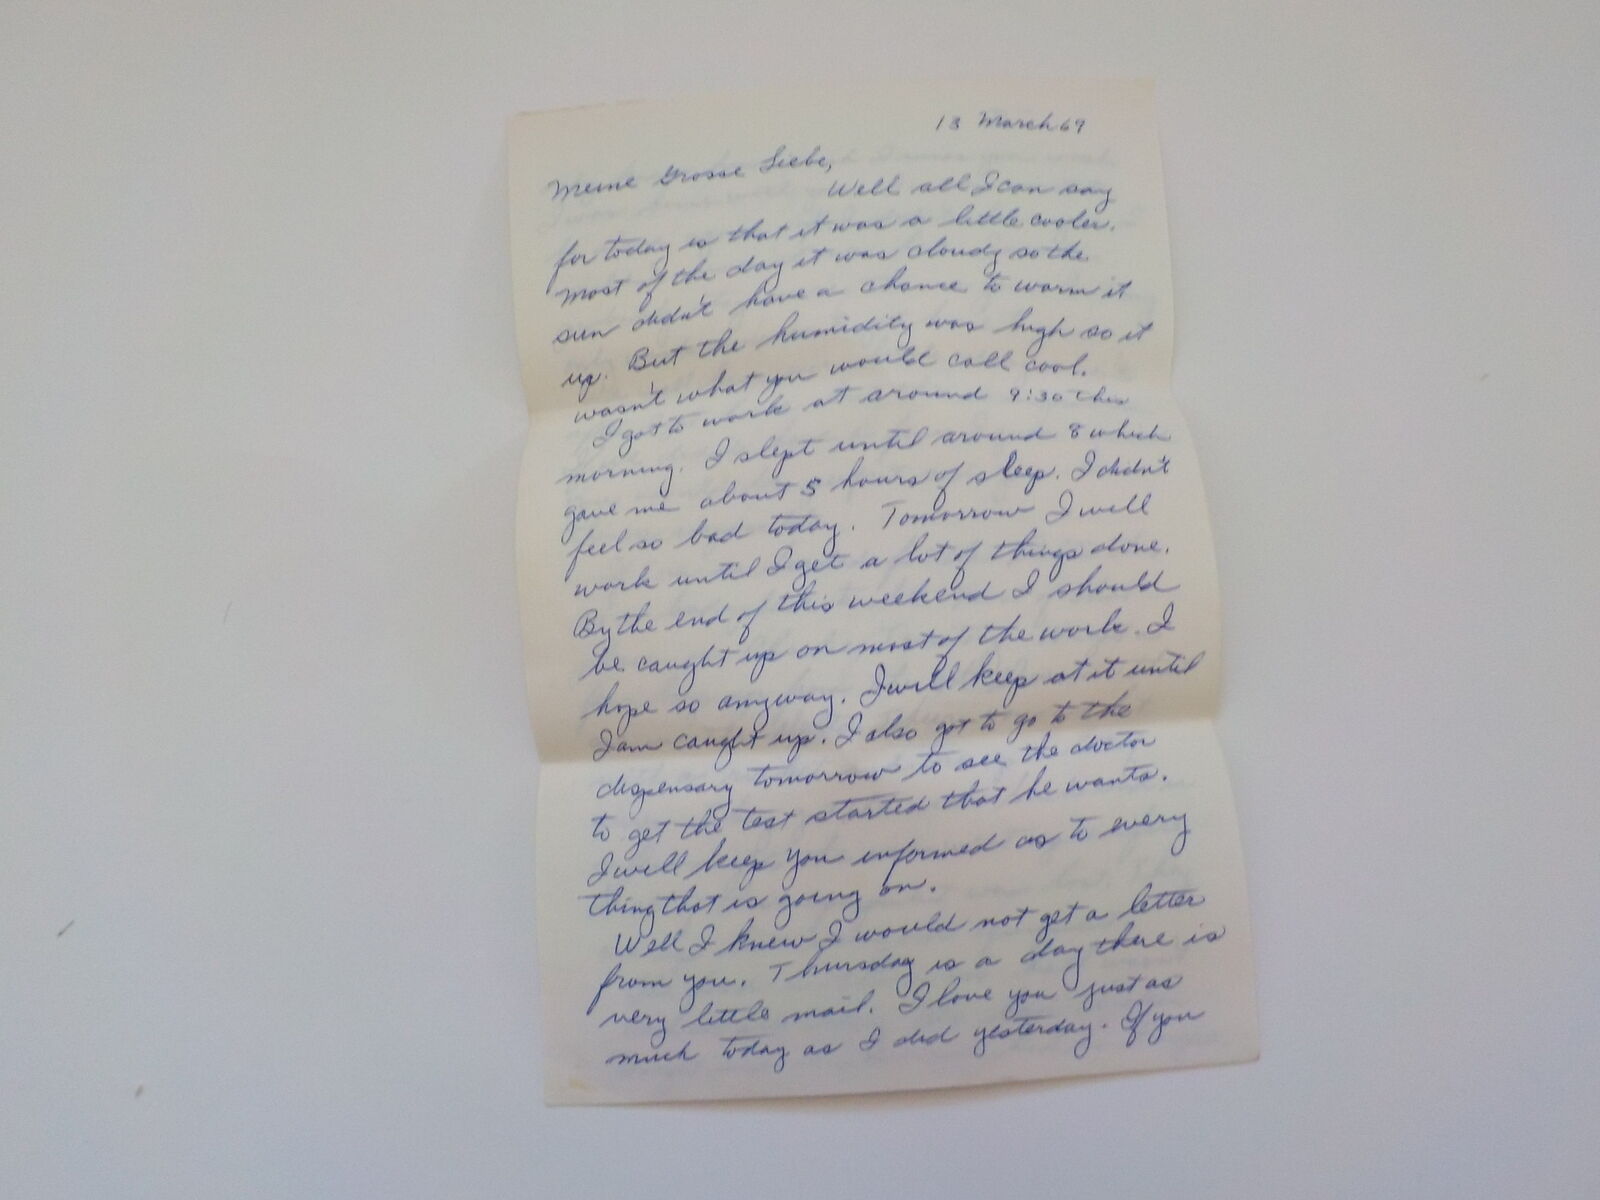 13 March 69
Meine Grosse Liebe,
Well all I can say
for today is that it was a little cooler.
Most of the day it was cloudy so the
sun didn't have a chance to warm it
up. But the humidity was high so it
wasn't what you would call cool.
I got to work at around 9:30 this
morning. I slept until around 8 which
gave me about 5 hours of sleep. I didn't
feel so bad today. Tomorrow I will
work until I get a lot of things done.
By the end of this weekend I should
be caught up on most of the work. I
hope so anyway. I will keep at it until
I am caught up. I also got to go to the
dispensary tomorrow to see the doctor
to get the test started that he wants.
I will keep you informed as to every
thing that is going on.
Well I knew I would not get a letter
from you. Thursday is a day there is
very little mail. I love you just as
much today as I did yesterday. If you